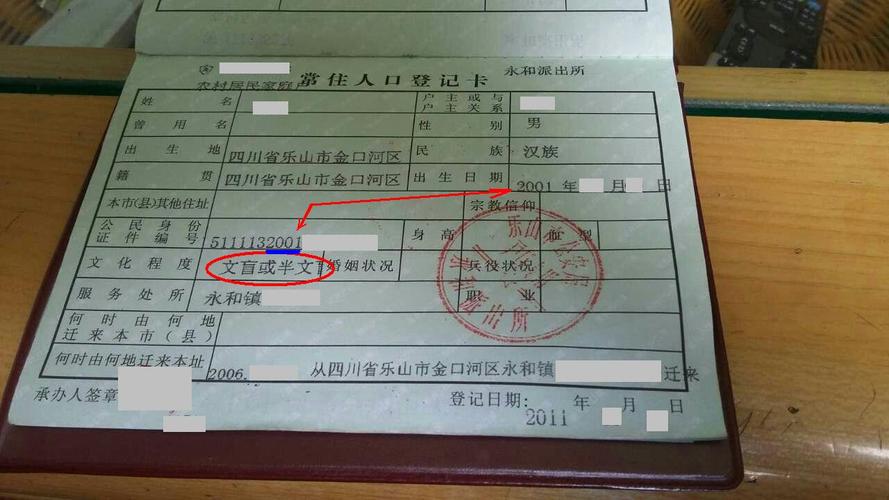 常住人口登记卡 永和派出所
农村居民家庭户
姓名 户主或与户主关系
曾用名 性别 男
出生地 四川省乐山市金口河区 民族 汉族
籍贯 四川省乐山市金口河区 出生日期 2001年 月 日
本市(县)其他住址 宗教信仰
公民身份证件编号 5111132001 身高 血型
文化程度 文盲或半文盲 婚姻状况 兵役状况
服务处所 永和镇 职业
何时由何地迁来本市(县)
何时由何地迁来本址 2006. 从四川省乐山市金口河区永和镇 迁来
承办人签章 登记日期: 2011 年 月 日
乐山市公安局
派出所